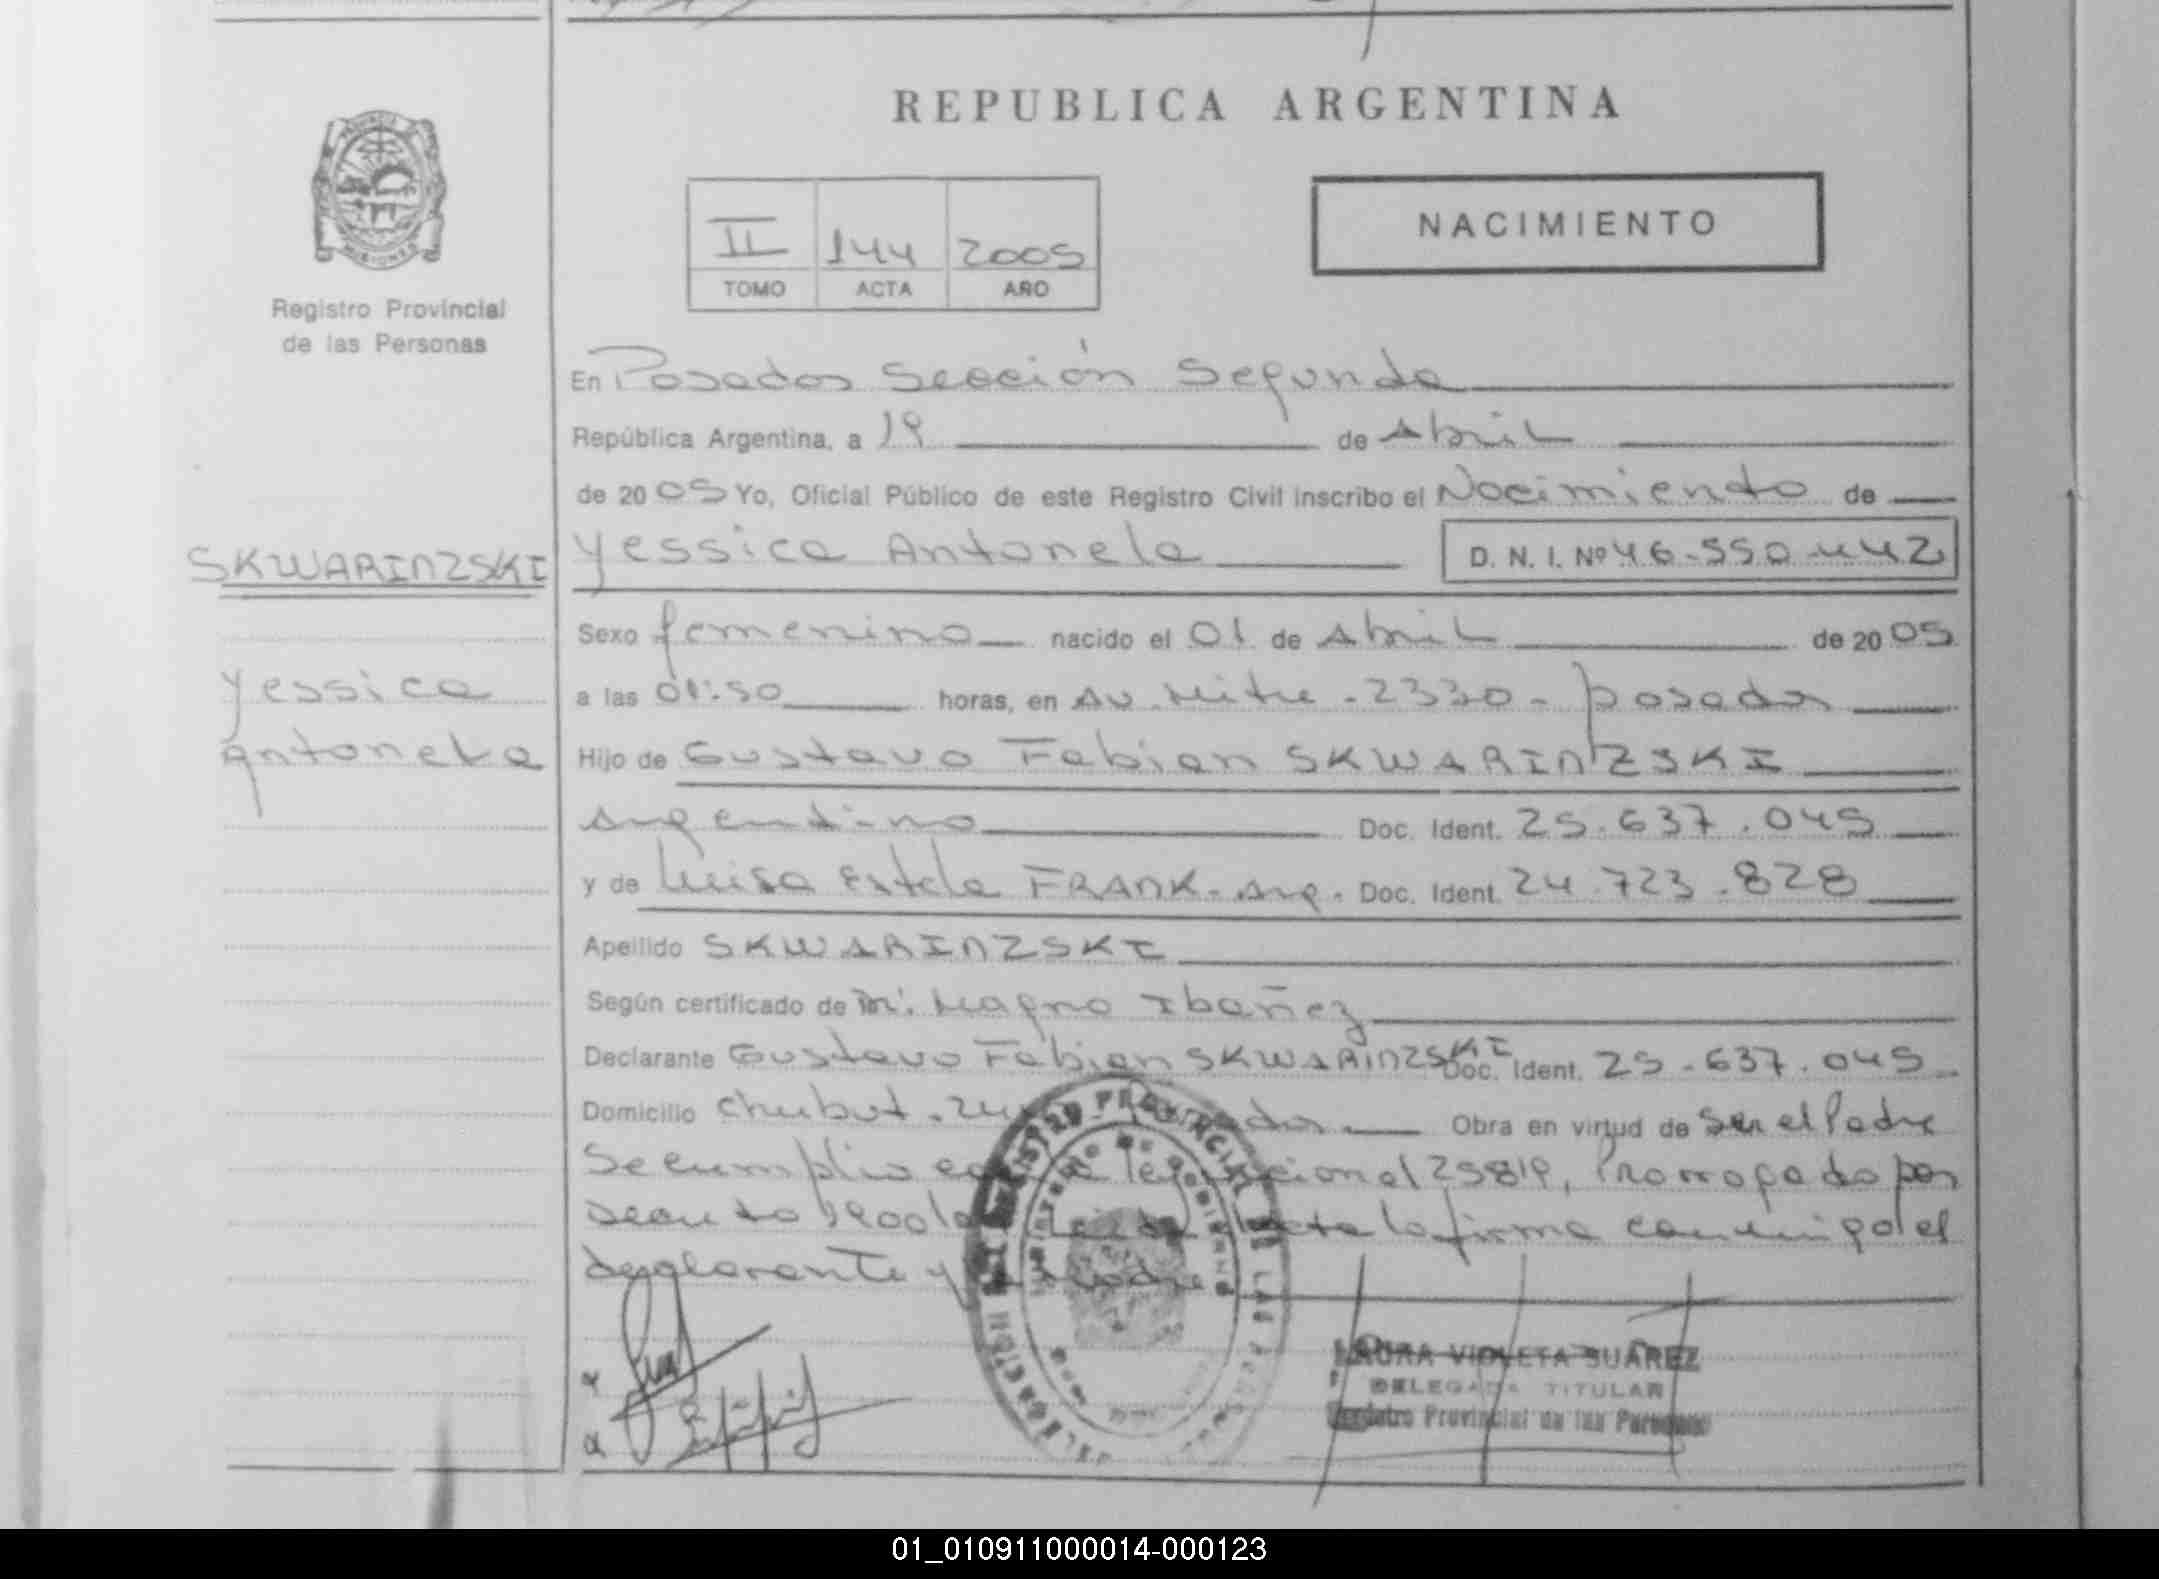 REPUBLICA ARGENTINA
NACIMIENTO
II 144 2005
TOMO ACTA AÑO
Registro Provincial
de las Personas
En Posadas Sección Segunda
República Argentina, a 19 de Abril
de 2005 Yo, Oficial Público de este Registro Civil inscribo el Nacimiento de
SKWARINZSKI
Yessica Antonela D. N. I. Nº 46-550-442
Sexo femenino nacido el 01 de Abril de 2005
Yessica
Antonela
a las 01:50 horas, en Av. Mitre - 2330 - Posadas
Hijo de Gustavo Fabian SKWARINZSKI
argentino Doc. Ident. 25.637.045
y de Luisa Estela FRANK - Arg. Doc. Ident. 24.723.828
Apellido SKWARINZSKI
Según certificado de Dr. Magno Ibañez
Declarante Gustavo Fabian SKWARINZSKI Doc. Ident. 25-637.045
Domicilio Chubut Obra en virtud de Ser el Padre
Se cumplio Ley 25819, Prorrogado por
la firma conmigo el
declarante y
LAURA VIOLETA SUAREZ
DELEGADA TITULAR
Registro Provincial de las Personas
01_010911000014-000123